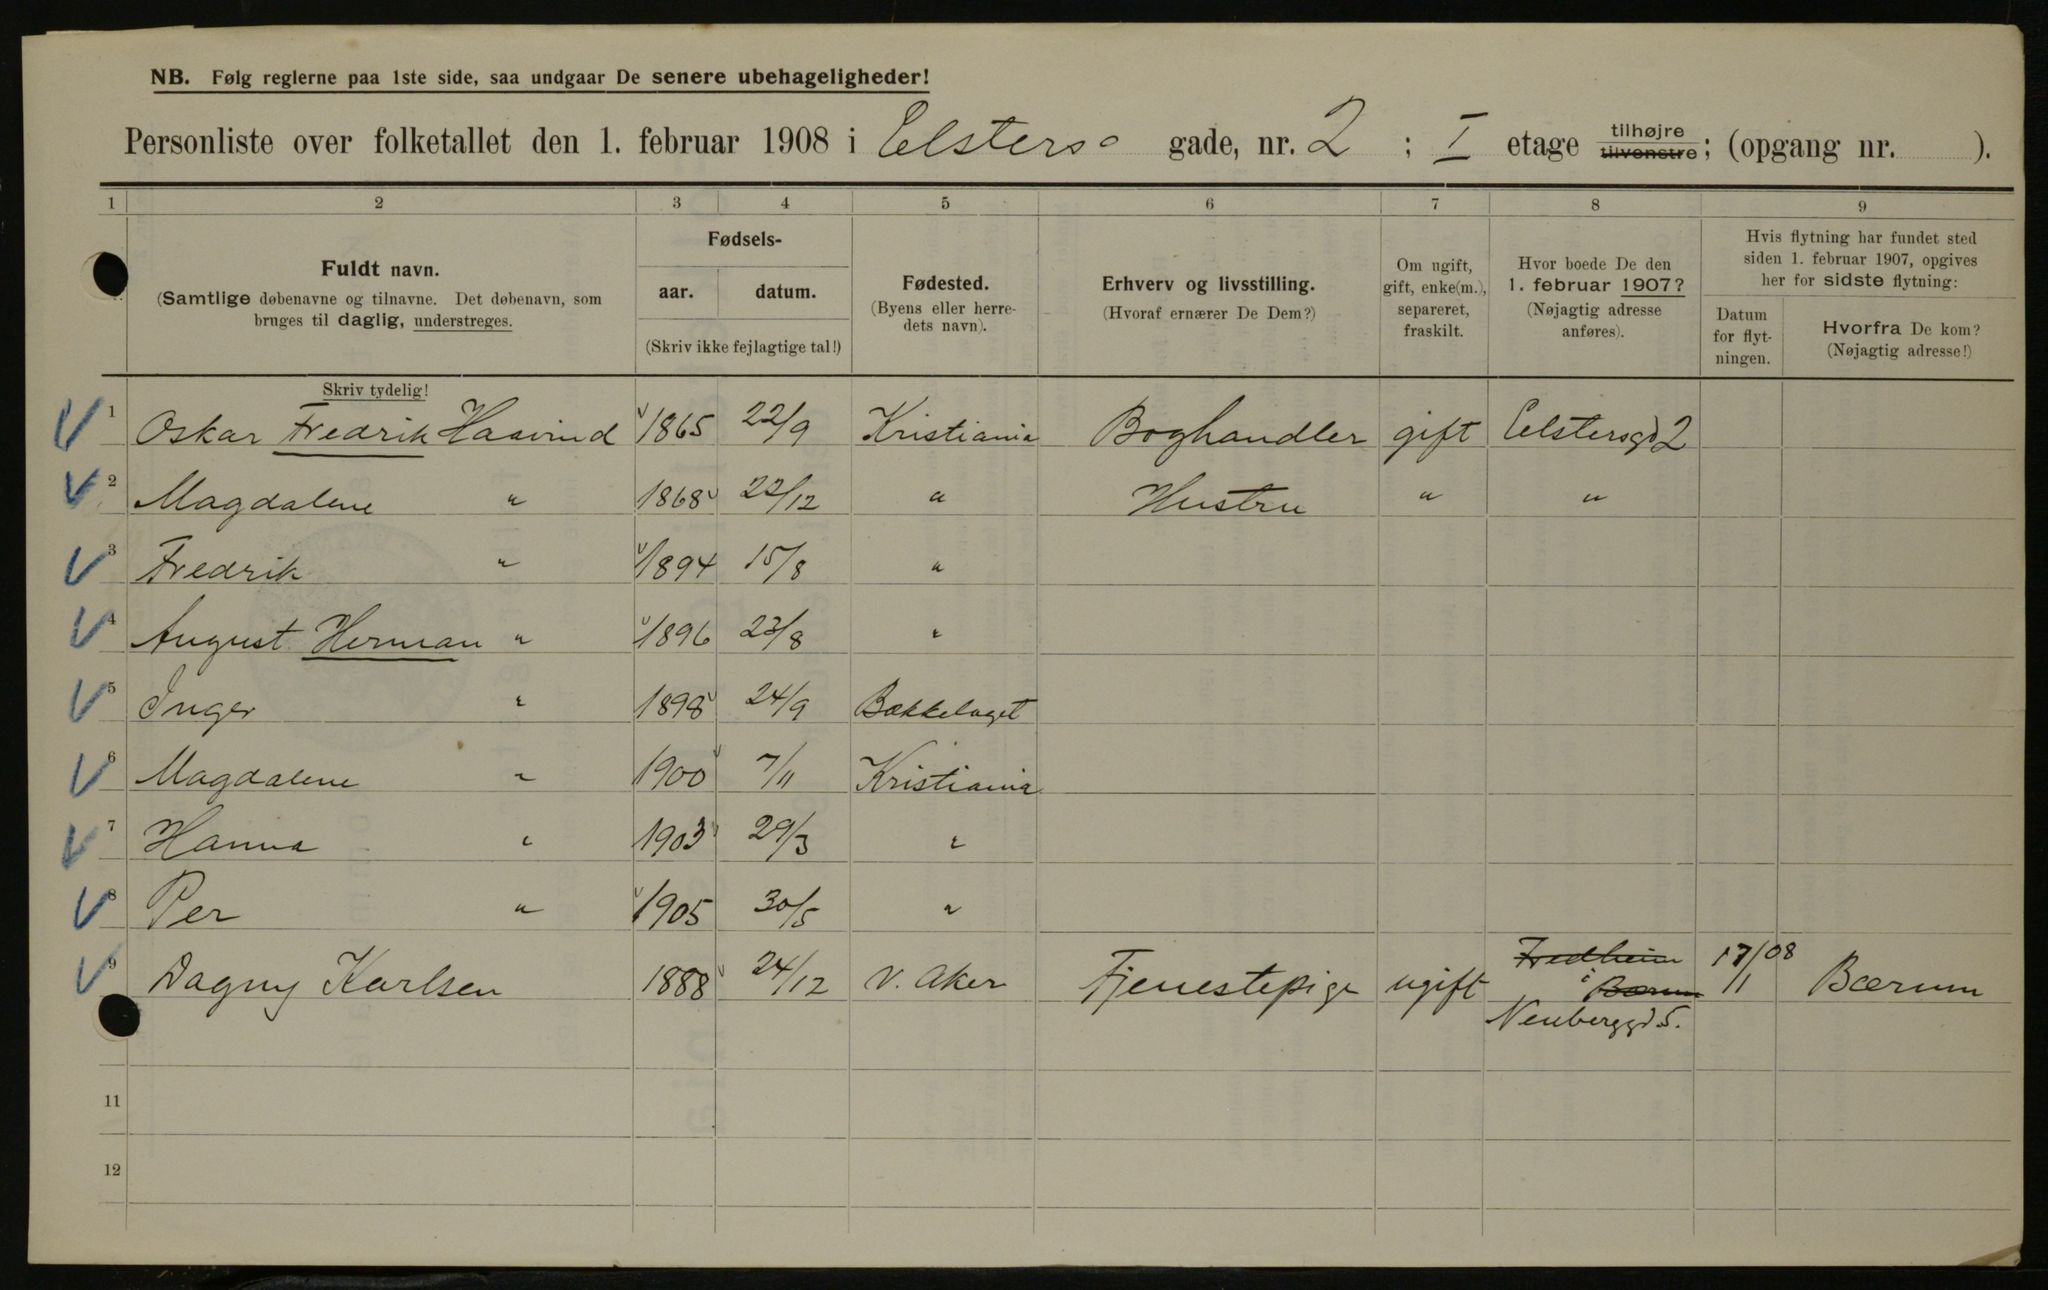 NB. Følg reglerne paa 1ste side, saa undgaar De senere ubehageligheder!
Personliste over folketallet den 1. februar 1908 i Eilsters gade, nr. 2 ; I etage tilhøjre tilvenstre; (opgang nr. ).
1 2 3 4 5 6 7 8 9
Fuldt navn.
(Samtlige døbenavne og tilnavne. Det døbenavn, som
bruges til daglig, understreges.
Skriv tydelig!
Fødsels-
aar. datum.
(Skriv ikke fejlagtige tal!)
Fødested.
(Byens eller herre-
dets navn).
Erhverv og livsstilling.
(Hvoraf ernærer De Dem?)
Om ugift,
gift, enke(m.),
separeret,
fraskilt.
Hvor boede De den
1. februar 1907?
(Nøjagtig adresse
anføres).
Hvis flytning har fundet sted
siden 1. februar 1907, opgives
her for sidste flytning:
Datum
for flyt-
ningen.
Hvorfra De kom?
(Nøjagtig adresse!)
1 Oskar Fredrik Haavind 1865 22/9 Kristiania Boghandler gift Eilstersgd 2
2 Magdalene " 1868 22/12 " Hustru " "
3 Fredrik " 1894 15/8 "
4 August Herman " 1896 23/8 "
5 Inger " 1898 24/9 Bækkelaget
6 Magdalene " 1900 7/11 Kristiania
7 Hanna " 1903 29/3 "
8 Per " 1905 30/5 "
9 Dagny Karlsen 1888 24/12 V. Aker Tjenestepige ugift Fredheim i Bærum 17/1 08 Bærum
Neuberggd 5.
11
12